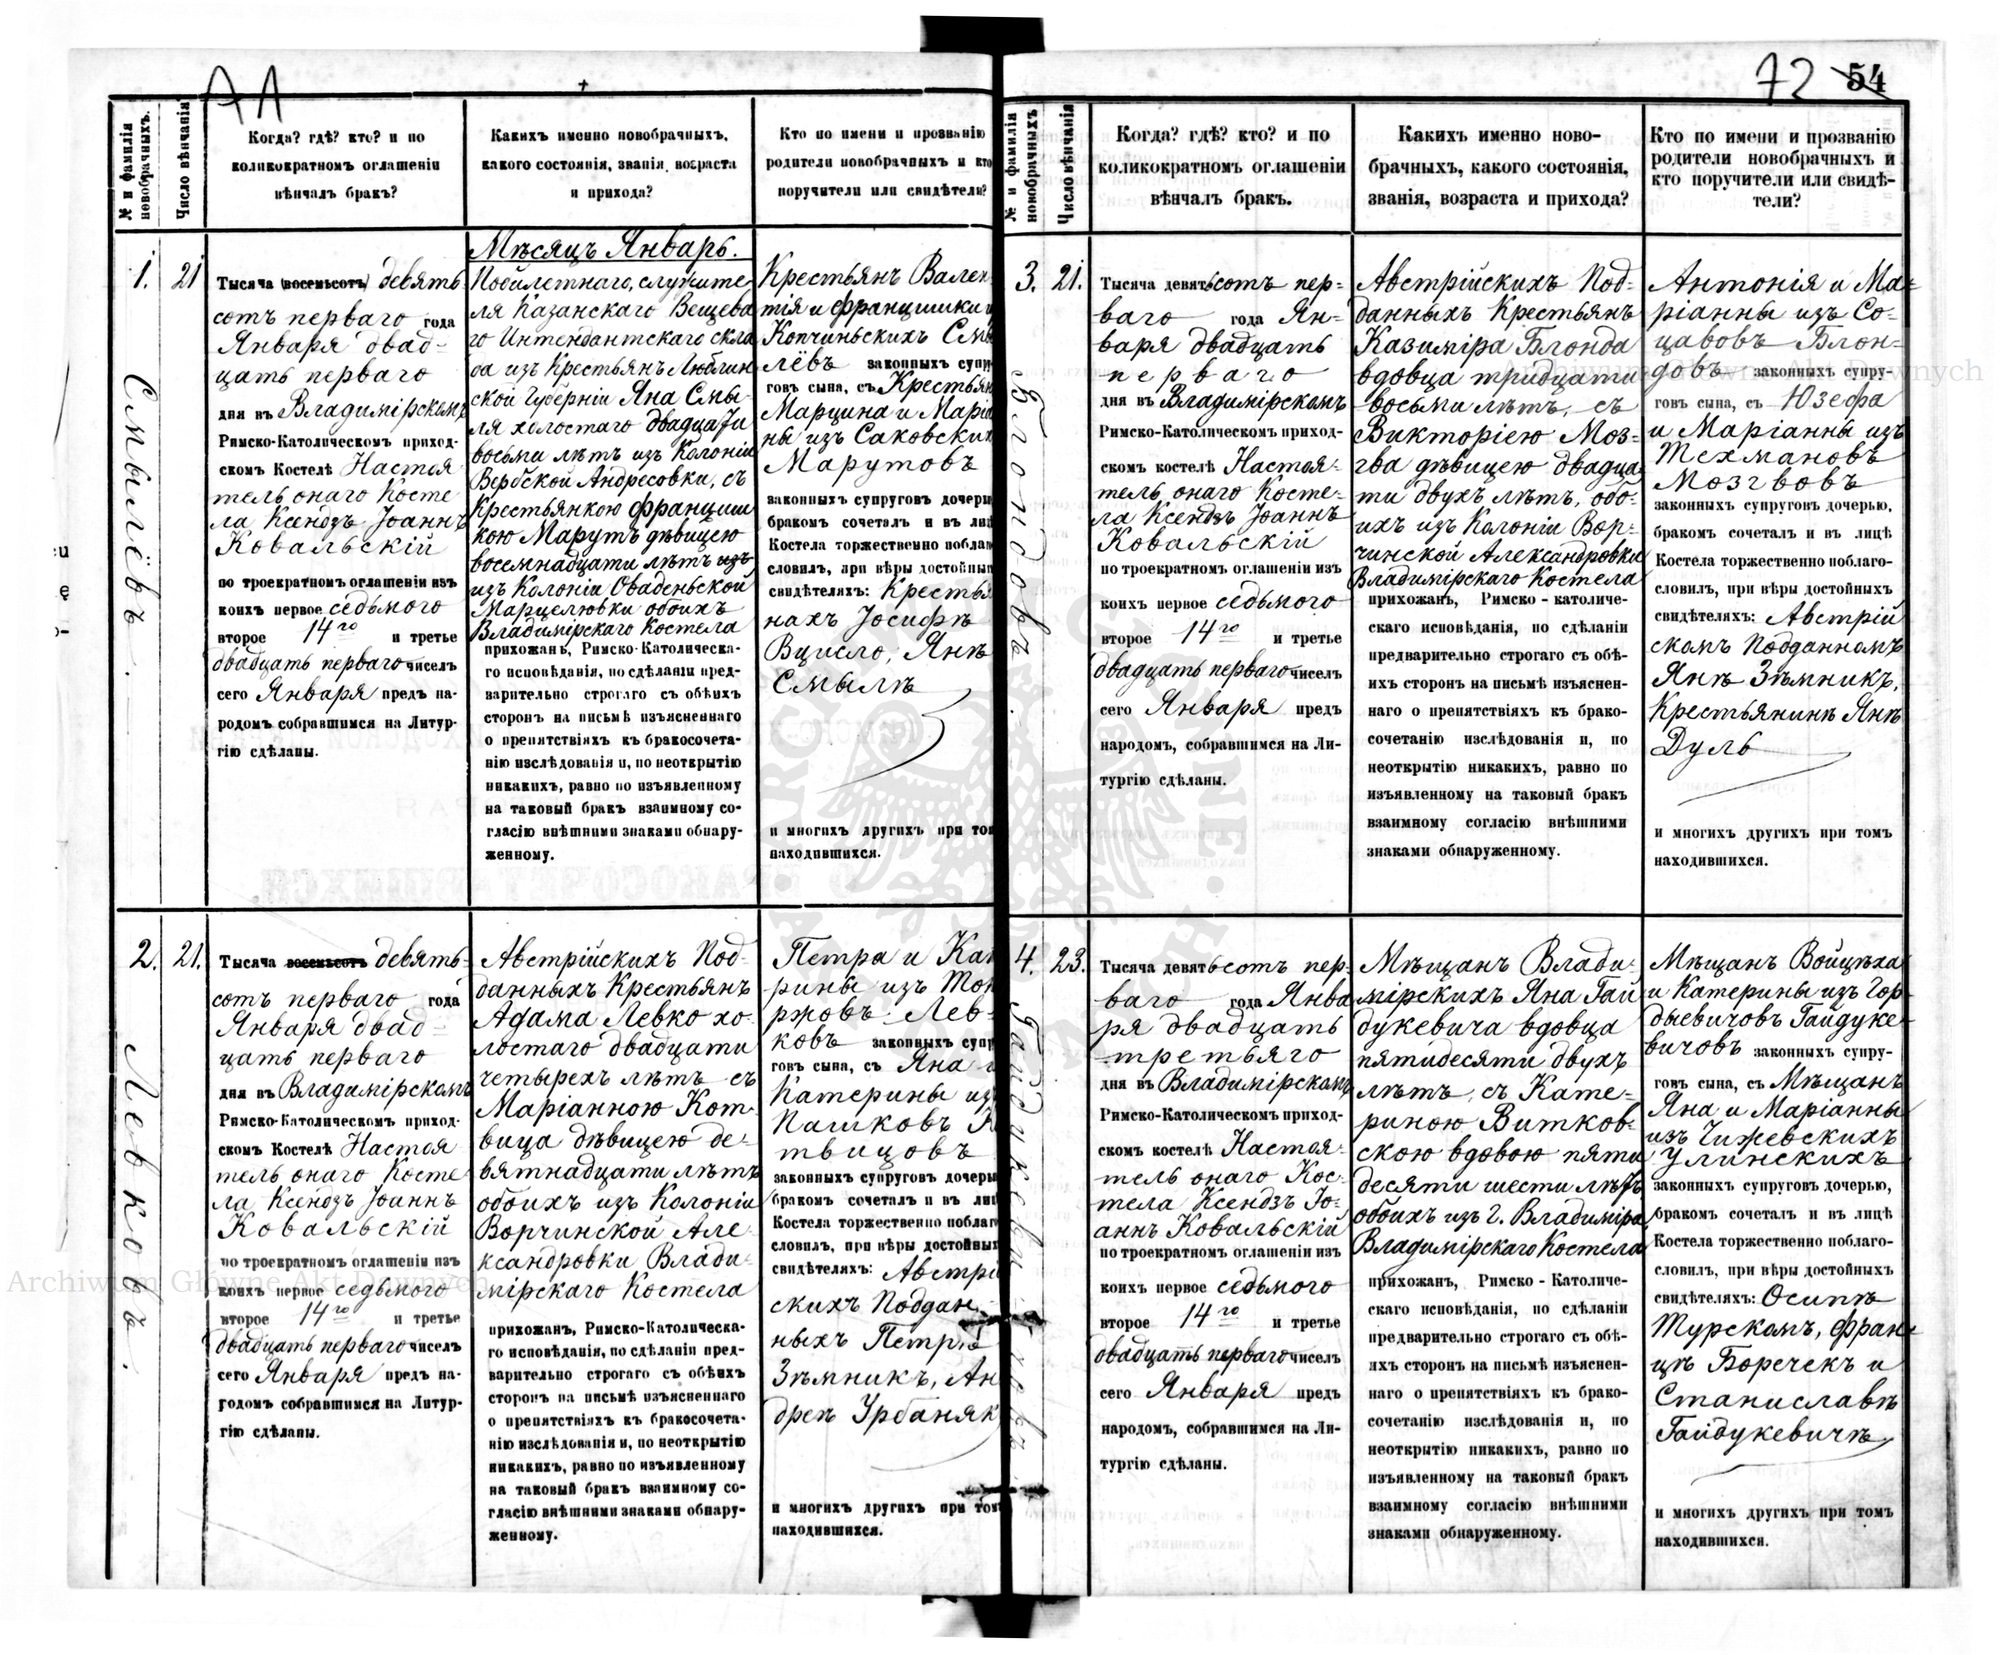 72 54
№ и фамилія новобрачныхъ.
Число вѣнчанія
Когда? гдѣ? кто? и по
коликократномъ оглашеніи
вѣнчалъ бракъ?
Какихъ именно новобрачныхъ,
какого состоянія, званія, возраста
и прихода?
Кто по имени и прозванію
родители новобрачныхъ и кто
поручители или свидѣтели?
1.
Смылёвъ.
21
Тысяча восемьсотъ девять-
сотъ перваго года
Января двад-
цать перваго
дня въ Владимірскомъ
Римско-Католическомъ приход-
скомъ Костелѣ Настоя-
тель онаго Косте
ла Ксендзъ Іоаннъ
Ковальскій
по троекратномъ оглашеніи изъ
коихъ первое седьмого
второе 14го и третье
двадцать перваго чиселъ
сего Января предъ на-
родомъ собравшимся на Литур-
гію сдѣланы.
Мѣсяцъ Январь.
Побилетнаго, служите
ля Казанскаго Вещева
го Интендантскаго скла
да изъ Крестьянъ Люблин
ской Губерніи Яна Смы-
ля холостаго двадцати
восьми лѣтъ изъ Колоніи
Вербской Андресовки, съ
Крестьянкою Францишк
кою Марутъ дѣвицею
восемнадцати лѣтъ изъ
изъ Колоніи Оваденьской
Марцелювки обоихъ
Владимірскаго Костела
прихожанъ, Римско-Католическа-
го исповѣданія, по сдѣланіи пред-
варительно строгаго съ обѣихъ
сторонъ на письмѣ изъясненнаго
о препятствіяхъ къ бракосочета-
нію изслѣдованія и, по неоткрытію
никакихъ, равно по изъявленному
на таковый бракъ взаимному со-
гласію внѣшними знаками обнару-
женному.
Крестьянъ Вален
тія и Францишки и
Копчиньскихъ Смы
лёвъ законныхъ супру
говъ сына, съ Крестьян
Марцина и Маріа
ны изъ Саковскихъ
Марутовъ
законныхъ супруговъ дочерью
бракомъ сочеталъ и въ лиц
Костела торжественно поблаго
словилъ, при вѣры достойныхъ
свидѣтеляхъ: Крестья
нахъ Іосифѣ
Вцисло, Янѣ
Смылѣ
и многихъ другихъ при том
находившихся.
2.
Левковъ.
21.
Тысяча восемьсотъ девять-
сотъ перваго года
Января двад-
цать перваго
дня въ Владимірскомъ
Римско-Католическомъ приход-
скомъ Костелѣ Настоя
тель онаго Косте-
ла Ксендзъ Іоаннъ
Ковальскій
по троекратномъ оглашеніи изъ
коихъ первое седьмого
второе 14го и третье
двадцать перваго чиселъ
сего Января предъ на-
родомъ собравшимся на Литур-
гію сдѣланы.
Австрійскихъ Под-
данныхъ Крестьянъ
Адама Левко хо-
лостаго двадцати
четырехъ лѣтъ съ
Маріанною Кот-
вица дѣвицею де-
вятнадцати лѣтъ
обоихъ изъ Колоніи
Ворчинской Але-
ксандровки Влади-
мірскаго Костела
прихожанъ, Римско-Католическа-
го исповѣданія, по сдѣланіи пред-
варительно строгаго съ обѣихъ
сторонъ на письмѣ изъясненнаго
о препятствіяхъ къ бракосочета-
нію изслѣдованія и, по неоткрытію
никакихъ, равно по изъявленному
на таковый бракъ взаимному со-
гласію внѣшними знаками обнару-
женному.
Петра и Кат
рины изъ Ток
ржовъ Лев-
ковъ законныхъ супр
говъ сына, съ Яна и
Катерины изъ
Пашковъ К
твицовъ
законныхъ супруговъ дочерь
бракомъ сочеталъ и въ лиц
Костела торжественно поблаг
словилъ, при вѣры достойных
свидѣтеляхъ: Австрій
скихъ Поддан-
ныхъ Петрѣ
Зѣмникъ, Ан
дреѣ Урбаняк
и многихъ другихъ при томъ
находившихся.
№ и фамилія новобрачныхъ
Число вѣнчанія
Когда? гдѣ? кто? и по
коликократномъ оглашеніи
вѣнчалъ бракъ.
Какихъ именно ново-
брачныхъ, какого состоянія,
званія, возраста и прихода?
Кто по имени и прозванію
родители новобрачныхъ и
кто поручители или свидѣ-
тели?
3.
Блондовъ.
21.
Тысяча девятьсотъ пер-
ваго года Ян-
варя двадцать
перваго
дня въ Владимірскомъ
Римско-Католическомъ приход-
скомъ костелѣ Настоя-
тель онаго Косте-
ла Ксендзъ Іоаннъ
Ковальскій
по троекратномъ оглашеніи изъ
коихъ первое седьмого
второе 14го и третье
двадцать перваго чиселъ
сего Января предъ
народомъ, собравшимся на Ли-
тургію сдѣланы.
Австрійскихъ Под-
данныхъ Крестьянъ
Казиміра Блонда
вдовца тридцати
восьми лѣтъ, съ
Викторіею Моз-
гва дѣвицею двадца
ти двухъ лѣтъ, обо-
ихъ изъ Колоніи Вор-
чинской Александровки
Владимірскаго Костела
прихожанъ, Римско-католиче-
скаго исповѣданія, по сдѣланіи
предварительно строгаго съ обѣ-
ихъ сторонъ на письмѣ изъяснен-
наго о препятствіяхъ къ брако-
сочетанію изслѣдованія и, по
неоткрытію никакихъ, равно по
изъявленному на таковый бракъ
взаимному согласію внѣшними
знаками обнаруженному.
Антонія и Ма-
ріанны изъ Со-
цавовъ Блон-
довъ законныхъ супру-
говъ сына, съ Юзефа
и Маріанны изъ
Техмановъ
Мозгвовъ
законныхъ супруговъ дочерью,
бракомъ сочеталъ и въ лицѣ
Костела торжественно поблаго-
словилъ, при вѣры достойныхъ
свидѣтеляхъ: Австрій
скомъ Подданномъ
Янѣ Зѣмникъ,
Крестьянинѣ Янѣ
Дуль
и многихъ другихъ при томъ
находившихся.
4.
Гайдукевичевъ
23.
Тысяча девятьсотъ пер-
ваго года Янва
ря двадцать
третьяго
дня въ Владимірскомъ
Римско-Католическомъ приход-
скомъ костелѣ Настоя-
тель онаго Кос-
тела Ксендзъ Іо-
аннъ Ковальскій
по троекратномъ оглашеніи изъ
коихъ первое седьмого
второе 14го и третье
двадцать перваго чиселъ
сего Января предъ
народомъ, собравшимся на Ли-
тургію сдѣланы.
Мѣщанъ Влади-
мірскихъ Яна Гай
дукевича вдовца
пятидесяти двухъ
лѣтъ, съ Кате-
риною Витков-
скою вдовою пяти
десяти шести лѣтъ
обоихъ изъ г. Владиміра
Владимірскаго Костела
прихожанъ, Римско-Католиче-
скаго исповѣданія, по сдѣланіи
предварительно строгаго съ обѣ-
ихъ сторонъ на письмѣ изъяснен-
наго о препятствіяхъ къ брако-
сочетанію изслѣдованія и, по
неоткрытію никакихъ, равно по
изъявленному на таковый бракъ
взаимному согласію внѣшними
знаками обнаруженному.
Мѣщанъ Войцѣха
и Катерины изъ Гор-
дыевичовъ Гайдуке-
вичовъ законныхъ супру-
говъ сына, съ Мѣщанъ
Яна и Маріанны
изъ Чижевскихъ
Улинскихъ
законныхъ супруговъ дочерью,
бракомъ сочеталъ и въ лицѣ
Костела торжественно поблаго-
словилъ, при вѣры достойныхъ
свидѣтеляхъ: Осипѣ
Турскомъ, Фран-
цѣ Боречекъ и
Станиславѣ
Гайдукевичѣ
и многихъ другихъ при томъ
находившихся.
Archiwum Główne Akt Dawnych
Archiwum Główne Akt Dawnych